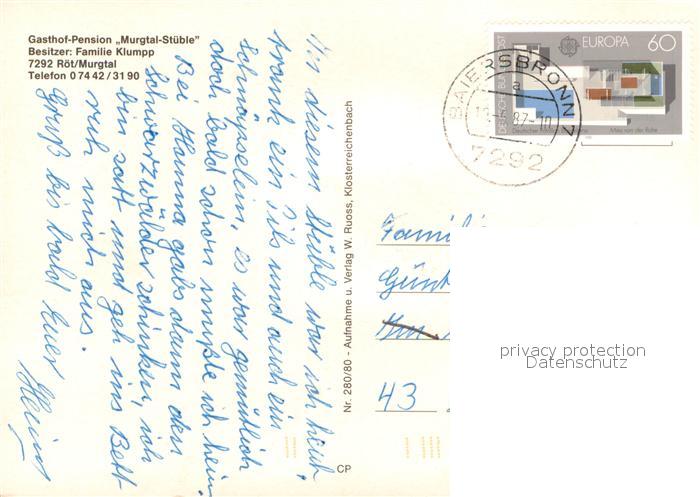 Gasthof-Pension „Murgtal-Stüble"
Besitzer: Familie Klumpp
7292 Röt/Murgtal
Telefon 0 74 42 / 31 90
In diesem Stüble war ich heut,
trank ein Pils und auch ein
Schnäpselein, es war gemütlich
doch bald schon mußte ich heim.
Bei Hanna gabs dann den
Schwarzwälder schinken, ich
bin satt und geh ins Bett
ruh mich aus.
Gruß bis bald Euer
Heinz
Nr. 280/80 - Aufnahme u. Verlag W. Ruoss, Klosterreichenbach
CP
DEUTSCHE BUNDESPOST
EUROPA 60
Deutscher
Mies van der Rohe
BAIERSBRONN 7
a
87-10
7292
Famili
Günt
43
privacy protection
Datenschutz